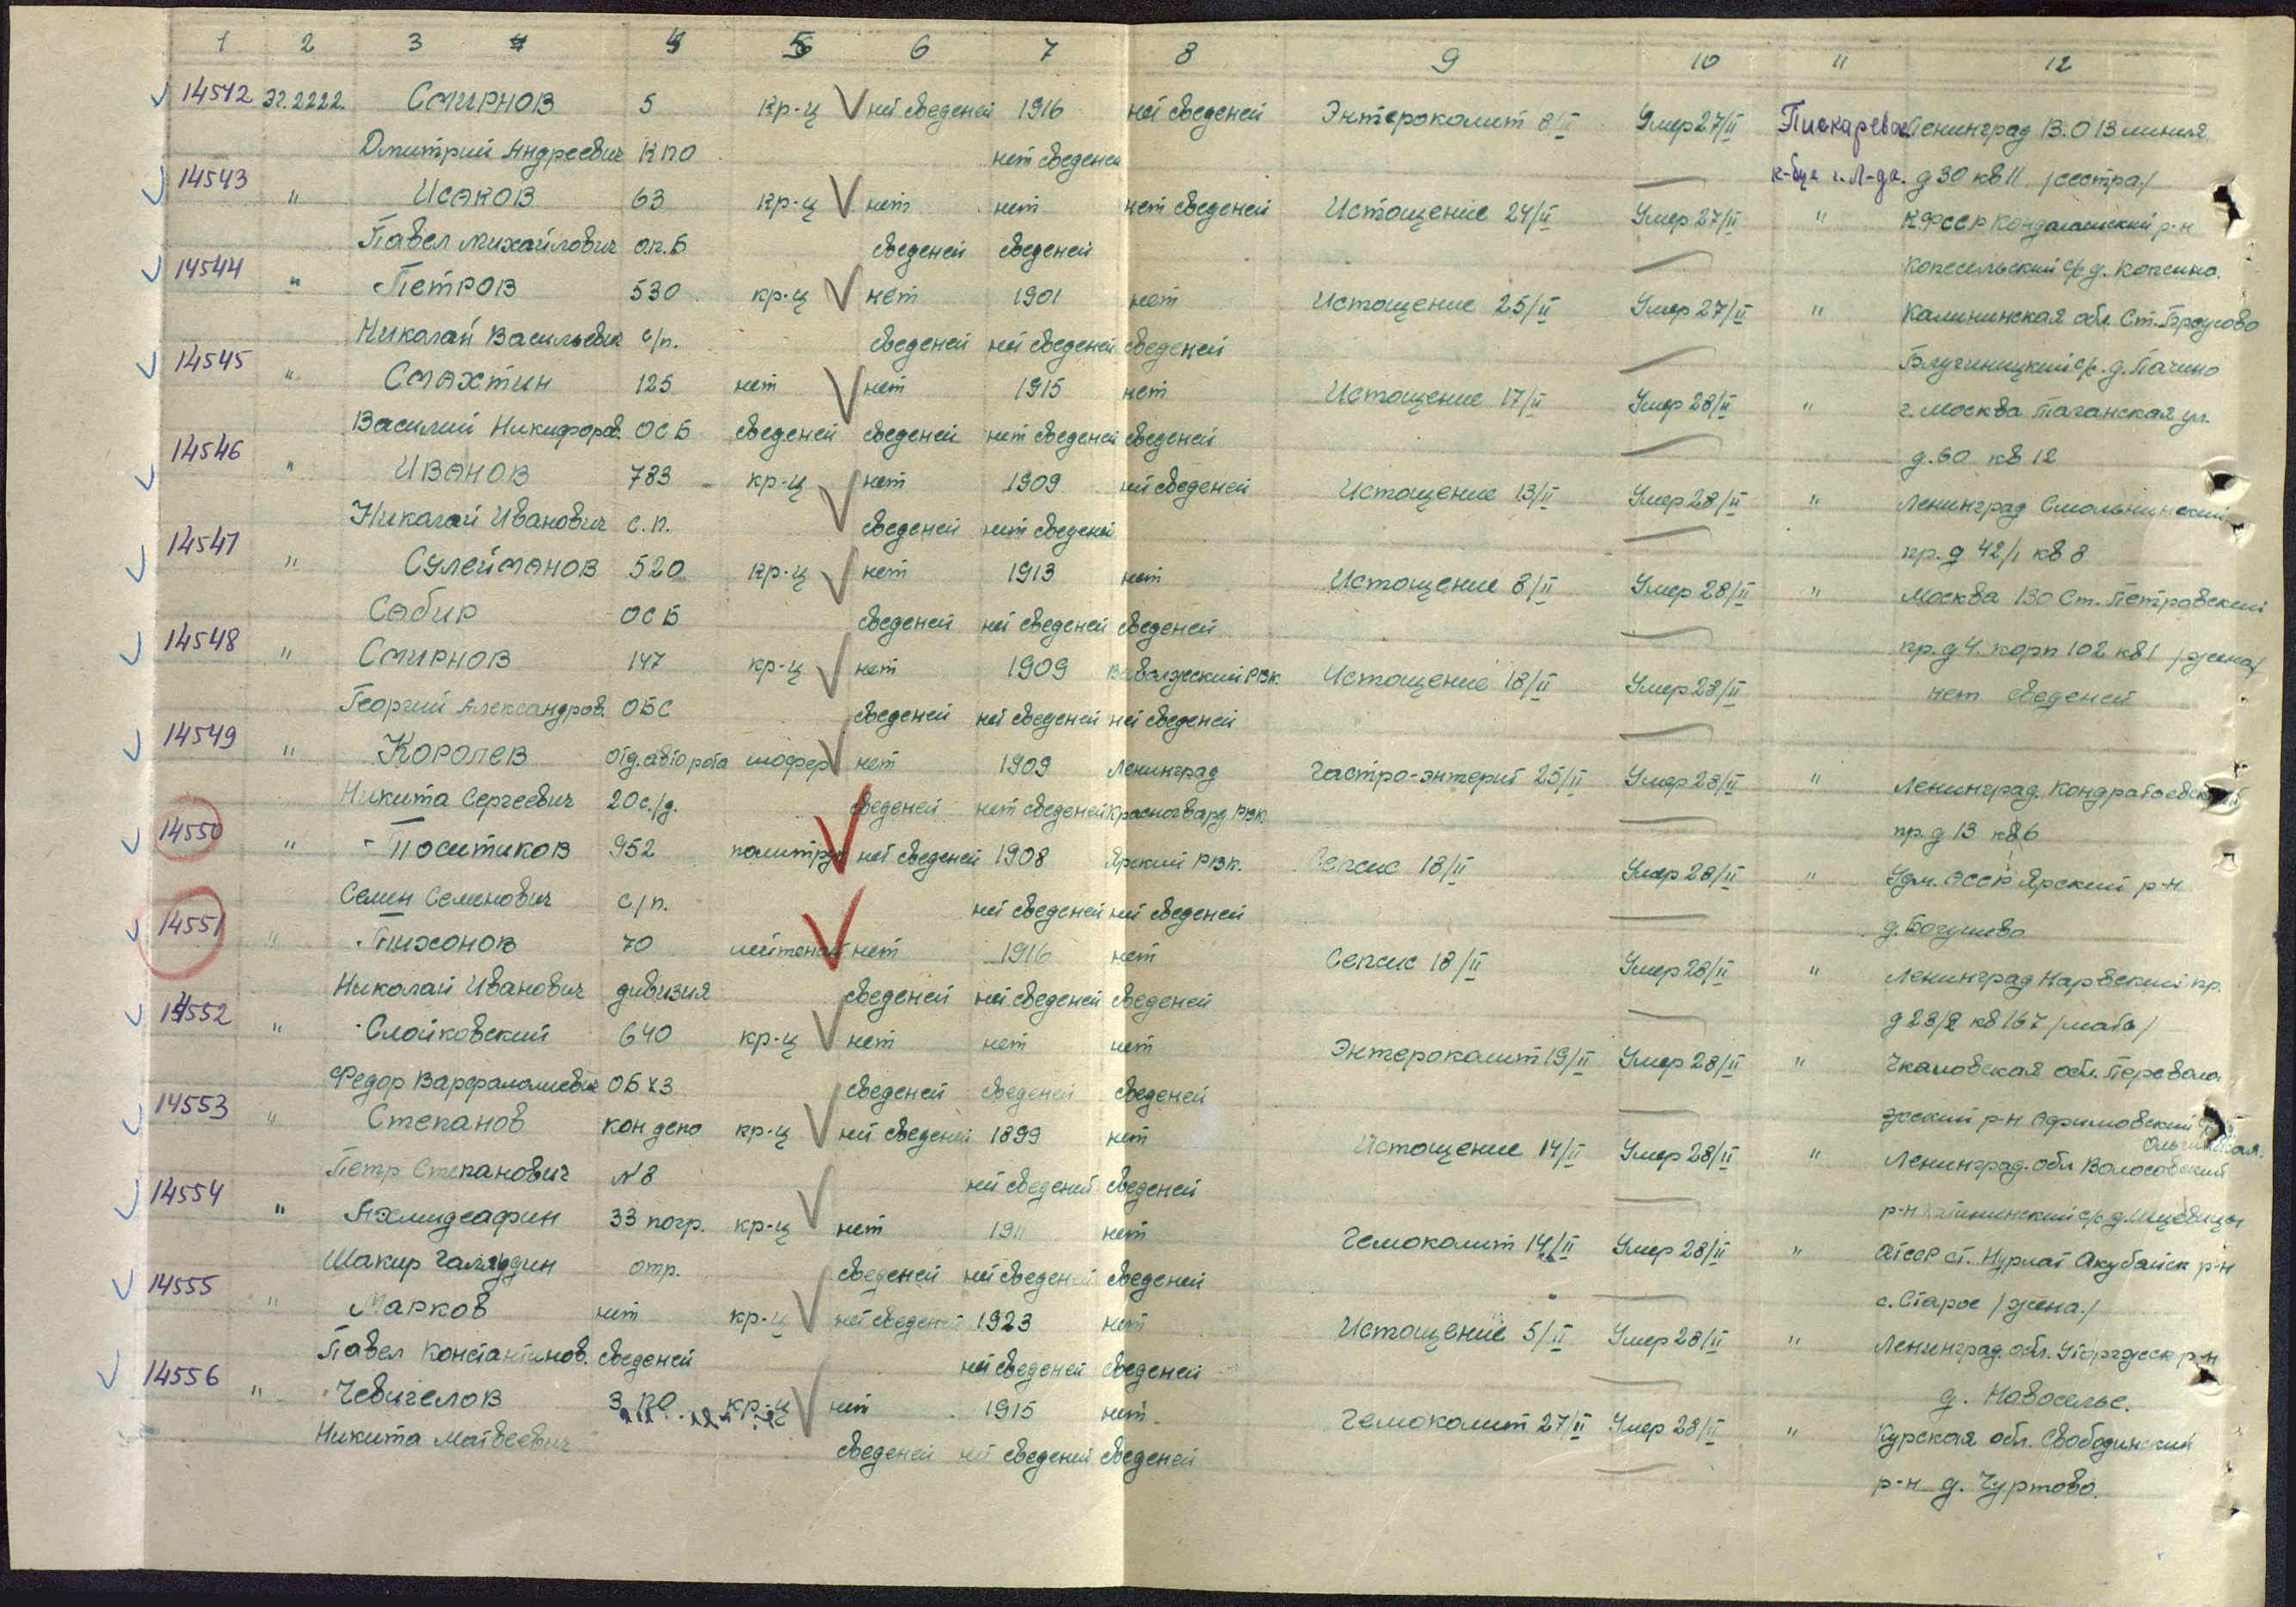 1 2 3 4 5 6 7 8 9 10 11 12
14542 эг. 2222. Смирнов 5 кр-ц нет сведений 1916 нет сведений Энтероколит 8/II Умер 27/II Пискаревское Ленинград В.О 13 линия
Дмитрий Андреевич КПО нет сведений к-бще г. Л-да. д 30 кв 11 /сестра/
14543 " Исаков 63 кр-ц нет нет нет сведений Истощение 24/II Умер 27/II " К.ФССР
Павел Михайлович о.п.б сведений сведений
14544 " Петров 530 кр-ц нет 1901 нет Истощение 25/II Умер 27/II " Калининская обл. Ст.
Николай Васильевич с/п. сведений нет сведений сведений с/с. д. Пачино
14545 " Смахтин 125 нет нет 1915 нет Истощение 17/II Умер 28/II " г. Москва Таганская ул.
Василий Никифоров. ОСБ сведений сведений нет сведений сведений д. 60 кв 12
14546 " Иванов 783 кр-ц нет 1909 нет сведений Истощение 13/II Умер 28/II " Ленинград Смольнинский
Николай Иванович с.п. сведений нет сведений пр. д 42/1 кв 8
14547 " Сулейманов 520 кр-ц нет 1913 нет Истощение 8/II Умер 28/II " Москва ВО Ст. Петровский
Сабир ОСБ сведений нет сведений сведений пр. д 4. корп 102 кв 1 /жена/
14548 " Смирнов 147 кр-ц нет 1909 РВК. Истощение 18/II Умер 28/II нет сведений
Георгий Александров. ОБС сведений нет сведений нет сведений
14549 " Королев отд. авто рота шофер нет 1909 Ленинград Гастро-энтерит 25/II Умер 28/II " Ленинград. Кондратьевский
Никита Сергеевич 20 с./д. сведений нет сведений Красногвард. РВК. пр. д 13 кв 6
14550 " Поситиков 952 политрук нет сведений 1908 Ярский РВК. Сепсис 18/II Умер 28/II " Удм. АССР Ярский р-н
Семен Семенович с/п. нет сведений нет сведений д. Богушево
14551 " Тихонов 70 лейтенант нет 1916 нет Сепсис 18/II Умер 28/II " Ленинград Нарвский пр.
Николай Иванович дивизия сведений нет сведений сведений д 23/2 кв 167 /мать/
14552 " Слойковский 640 кр-ц нет нет нет Энтероколит 19/II Умер 28/II " Чкаловская обл. Перевола
Федор Варфаламеевич ОБХЗ сведений сведений сведений жский р-н
14553 " Степанов кон депо кр-ц нет сведений 1899 нет Истощение 14/II Умер 28/II " Ленинград. обл Волосовский
Петр Степанович №8 нет сведений сведений р-н
14554 " Ахмидеафин 33 погр. кр-ц нет 1911 нет Гемоколит 14/II Умер 28/II " АТССР ст. Нурлат Акубайск р-н
Шакир отр. сведений нет сведений сведений с. Старое /жена./
14555 " Марков нет кр-ц нет сведений 1923 нет Истощение 5/II Умер 28/II " Ленинград. обл. р-н
Павел Константинов. сведений нет сведений сведений д. Новоселье.
14556 " Чевичелов 3 кр-ц нет 1915 нет Гемоколит 27/II Умер 28/II " Курская обл. Свободинский
Никита Матвеевич сведений нет сведений сведений р-н д. Чуртово.